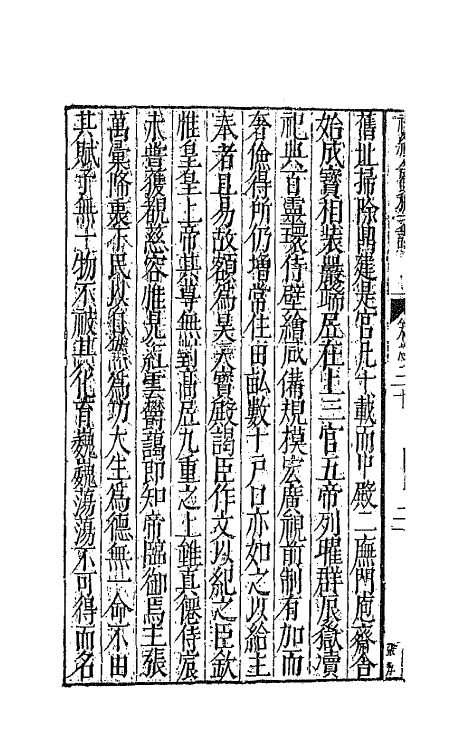 舊址掃除鼎建是宮凡十載而中殿二廡門庖齋舎
始成寳相装嚴端居在上三官五帝列曜群辰嶽瀆
祀典百靈環侍壁繪咸備規模宏廣視前制有加而
奢儉得所仍增常住田畆數十戸口亦如之以給主
奉者且易故額為昊天寳殿謁臣作文以紀之臣欽
惟皇皇上帝其尊無對髙居九重之上雖真僊侍宸
未甞獲覩慈容惟見紅雲欝藹即知帝臨御焉主張
萬彚脩衷下民以無為功大生為德無一命不由
其賦予無一物不被其化育巍巍蕩蕩不可得而名
二十
二